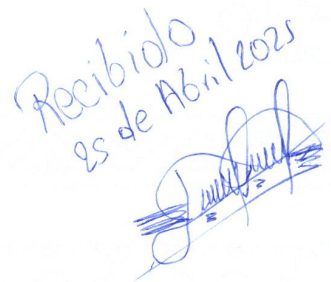 Recibido
25 de Abril 2025